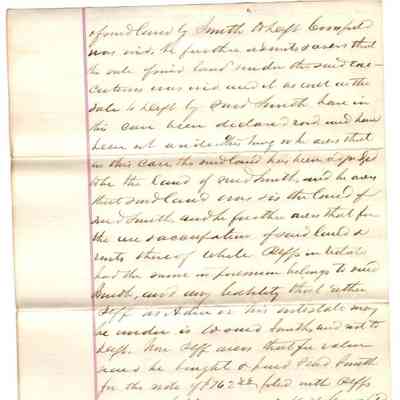 of said land by Smith to Deft Compft
was void, he further admits & avers that
the sale of said land under the said exe-
cutions was void and it as well as the
sale to Deft by said Smith have in
this case been declared void and have
been set aside. This being so he avers that
in this case the said land has been
be the land of said Smith, and he avers
that said land was & is the land of
said Smith and he further avers that for
the use & occupation of said land &
rents thereof while Plffs intestate
had the same in possession belongs to said
Smith, and any liability that either
Plff as Admr or his intestate may
be under is to said Smith and not to
Deft. Now Plff avers that for value
he bought of said Smith
for the note of $762 filed with Plffs